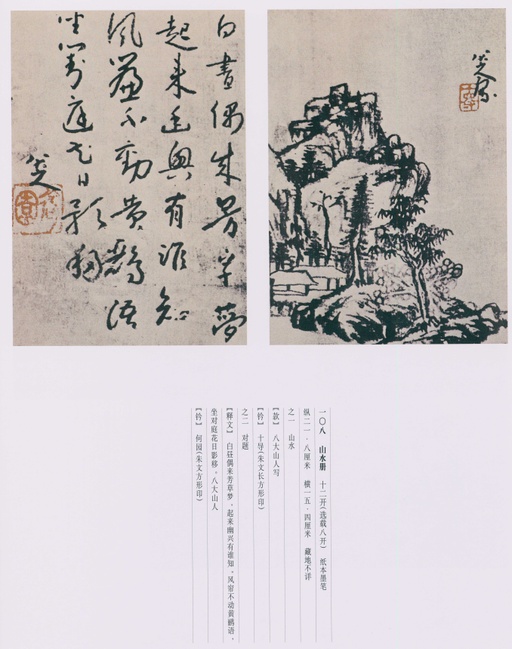 八大山人写
白晝偶成芳草夢
起来幽興有谁知
風簾不動黃鸝語
坐對庭花日影移
八大山人
一〇八　山水册　十二开(选载八开)　纸本墨笔
纵二一·八厘米　横一五·四厘米　藏地不详
之一　山水
【款】　八大山人写
【钤】　十导(朱文长方形印)
之二　对题
【释文】　白昼偶来芳草梦，起来幽兴有谁知。风帘不动黄鹂语，
坐对庭花日影移。八大山人
【钤】　何园(朱文方形印)